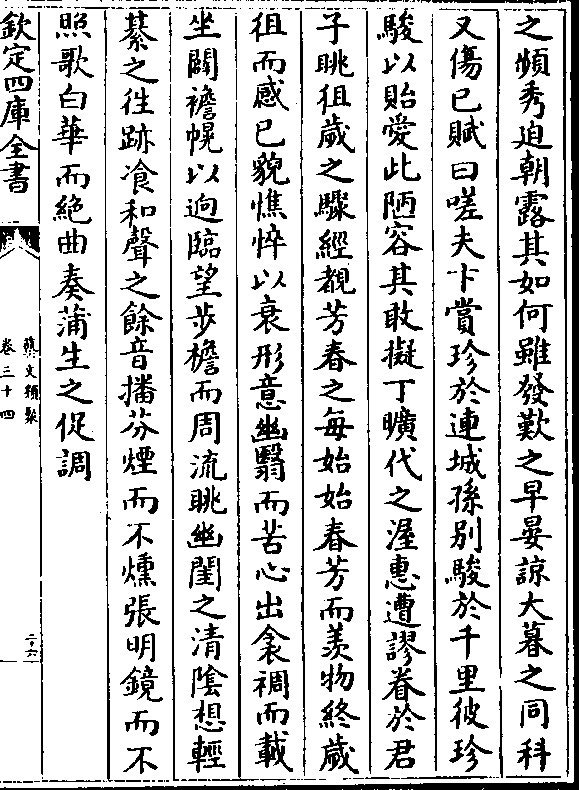 之傾秀迫朝露其如何雖發歎之早晏諒大暮之同科
又傷已賦曰嗟夫卞賞珍於連城孫别駿於千里彼珍
駿以貽愛此陋容其敢擬丁曠代之渥惠遭謬眷於君
子眺徂歲之驟經覩芳春之每始始春芳而羡物終歲
徂而感已貌憔悴以衰形意幽翳而苦心出衾禂而載
坐闢襜幌以逈臨望步櫩而周流眺幽閨之清陰想輕
綦之徃跡飡和聲之餘音播芬煙而不燻張明鏡而不
照歌白華而絶曲奏蒲生之促調
欽定四庫全書
藝文類聚
卷三十四
二十六